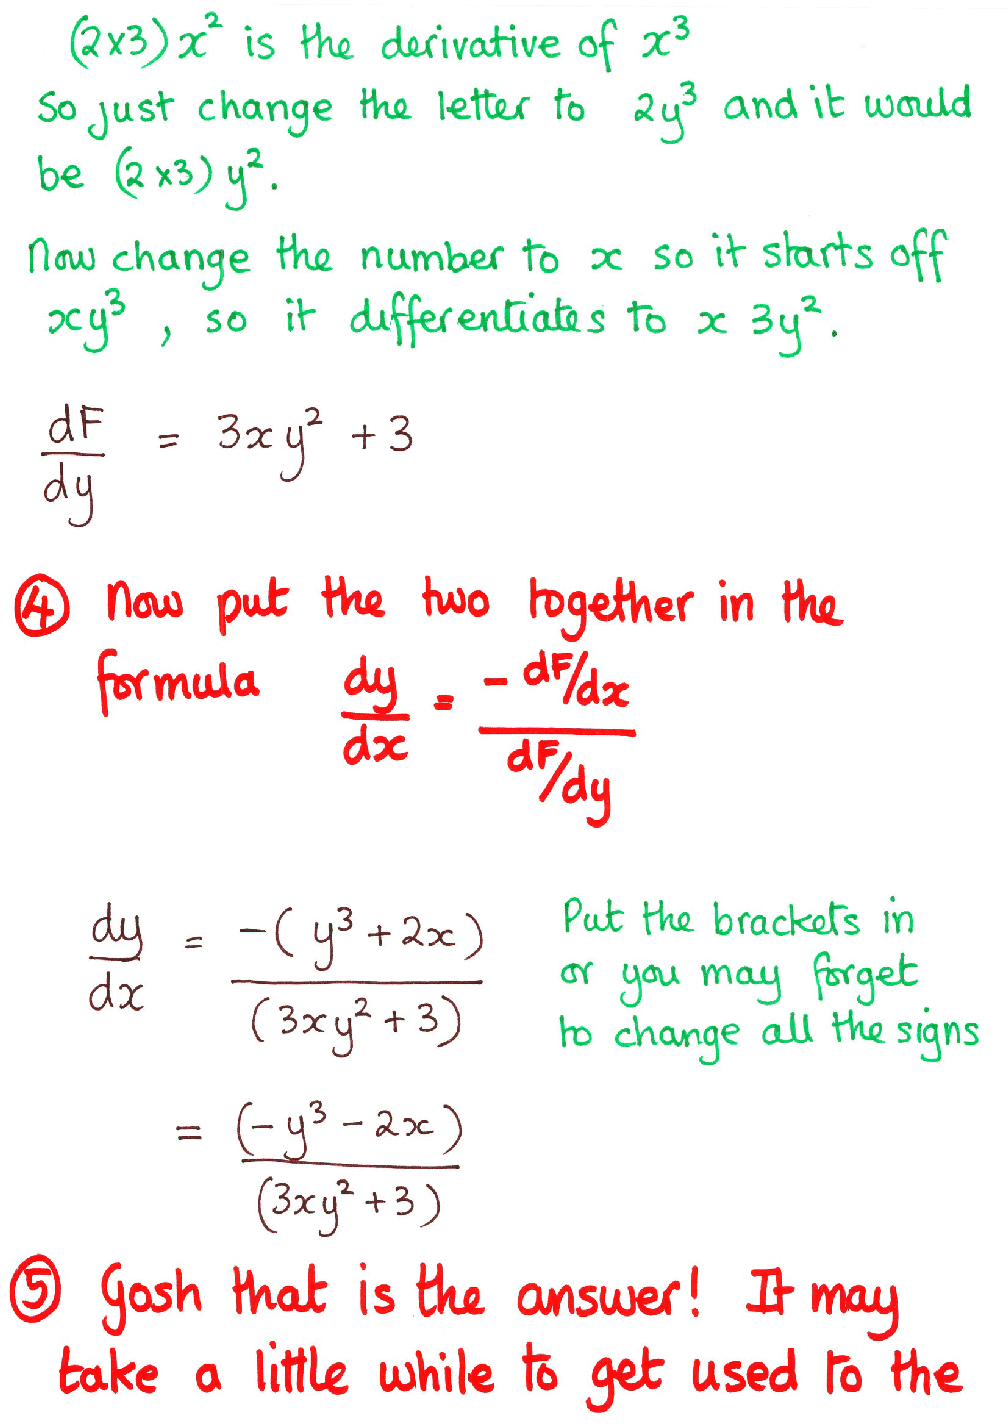 (2x3) x² is the derivative of x³
So just change the letter to 2y³ and it would
be (2x3) y².
Now change the number to x so it starts off
xy³, so it differentiates to x 3y².
dF/dy = 3xy² + 3
④ Now put the two together in the
formula dy/dx = - dF/dx / dF/dy
dy/dx = -(y³ + 2x) / (3xy² + 3)
Put the brackets in
or you may forget
to change all the signs
= (-y³ - 2x) / (3xy² + 3)
⑤ Gosh that is the answer! It may
take a little while to get used to the